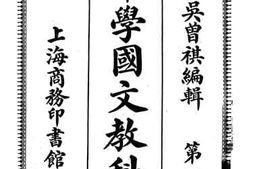 吳曾祺編輯 第
學國文教科
上海商務印書館